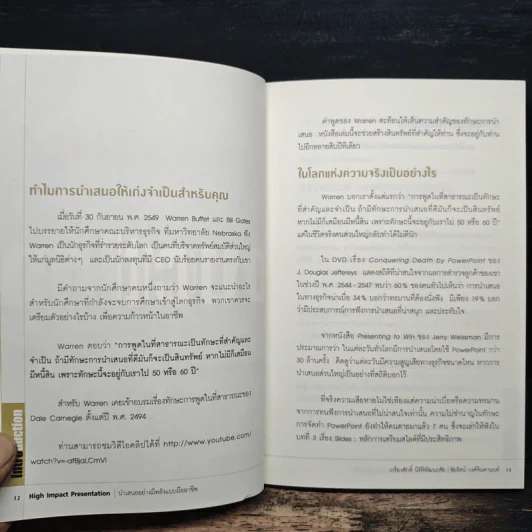 ทำไมการนำเสนอให้เก่งจำเป็นสำหรับคุณ
เมื่อวันที่ 30 กันยายน พ.ศ. 2549 Warren Buffet และ Bill Gates
ไปบรรยายให้นักศึกษาคณะบริหารธุรกิจ ที่มหาวิทยาลัย Nebraska ซึ่ง
Warren เป็นนักธุรกิจที่ร่ำรวยระดับโลก เป็นคนที่บริจาคทรัพย์สมบัติส่วนใหญ่
ให้แก่มูลนิธิต่างๆ และเป็นนักลงทุนที่มี CEO นับร้อยคนรายงานตรงกับเขา
มีคำถามจากนักศึกษาคนหนึ่งถามว่า Warren จะแนะนำอะไร
สำหรับนักศึกษาที่กำลังจะจบการศึกษาเข้าสู่โลกธุรกิจ พวกเขาควรจะ
เตรียมตัวอย่างไรบ้าง เพื่อความก้าวหน้าในอาชีพ
Warren ตอบว่า "การพูดในที่สาธารณะเป็นทักษะที่สำคัญและ
จำเป็น ถ้ามีทักษะการนำเสนอที่ดีมันก็จะเป็นสินทรัพย์ หากไม่มีก็เสมือน
มีหนี้สิน เพราะทักษะนี้จะอยู่กับเราไป 50 หรือ 60 ปี"
สำหรับ Warren เคยเข้าอบรมเรื่องทักษะการพูดในที่สาธารณะของ
Dale Carnegie ตั้งแต่ปี พ.ศ. 2494
ท่านสามารถชมวิดีโอคลิปได้ที่ http://www.youtube.com/
Introduction
12 High Impact Presentation นำเสนออย่างมีพลังแบบมืออาชีพ
คำพูดของ Warren สะท้อนให้เห็นความสำคัญของทักษะการนำ
เสนอ หนังสือเล่มนี้จะช่วยสร้างสินทรัพย์ที่สำคัญให้ท่าน ซึ่งจะอยู่กับท่าน
ไปอีกหลายสิบปีทีเดียว
ในโลกแห่งความจริงเป็นอย่างไร
Warren บอกเราตั้งแต่แรกว่า "การพูดในที่สาธารณะเป็นทักษะ
ที่สำคัญและจำเป็น ถ้ามีทักษะการนำเสนอที่ดีมันก็จะเป็นสินทรัพย์
หากไม่มีก็เสมือนมีหนี้สิน เพราะทักษะนี้จะอยู่กับเราไป 50 หรือ 60 ปี"
แต่ในชีวิตจริงคนส่วนใหญ่กลับทำได้ไม่ดีนัก
ใน DVD เรื่อง Conquering Death by PowerPoint ของ
J. Douglas Jefferys แสดงสถิติที่น่าสนใจจากผลการสำรวจลูกค้าของเขา
ในช่วงปี พ.ศ. 2544-2547 พบว่า 60% ของคนทั่วไปเห็นว่า การนำเสนอ
ในทางธุรกิจน่าเบื่อ 34% บอกว่าทรมานที่ต้องนั่งฟัง มีเพียง 19% บอก
ว่ามีประสบการณ์การฟังการนำเสนอที่น่าสนุก และประทับใจ
จากหนังสือ Presenting to Win ของ Jerry Weissman มีการ
ประมาณการว่า ในแต่ละวันทั่วโลกมีการนำเสนอโดยใช้ PowerPoint กว่า
30 ล้านครั้ง คิดดูว่าแต่ละวันมีความสูญเสียทางธุรกิจขนาดไหน หากการ
นำเสนอส่วนใหญ่เป็นอย่างที่สถิติบอกไว้
ที่จริงความเสียหายไม่ใช่เพียงแต่ความน่าเบื่อหรือความทรมาน
จากการทนฟังการนำเสนอที่ไม่น่าสนใจเท่านั้น ความไม่ชำนาญในทักษะ
การจัดทำ PowerPoint ยังทำให้คนตายมาแล้ว 7 คน ซึ่งจะเล่าให้ฟังใน
บทที่ 3 เรื่อง Slides : หลักการเตรียมสไลด์ที่มีประสิทธิภาพ
13